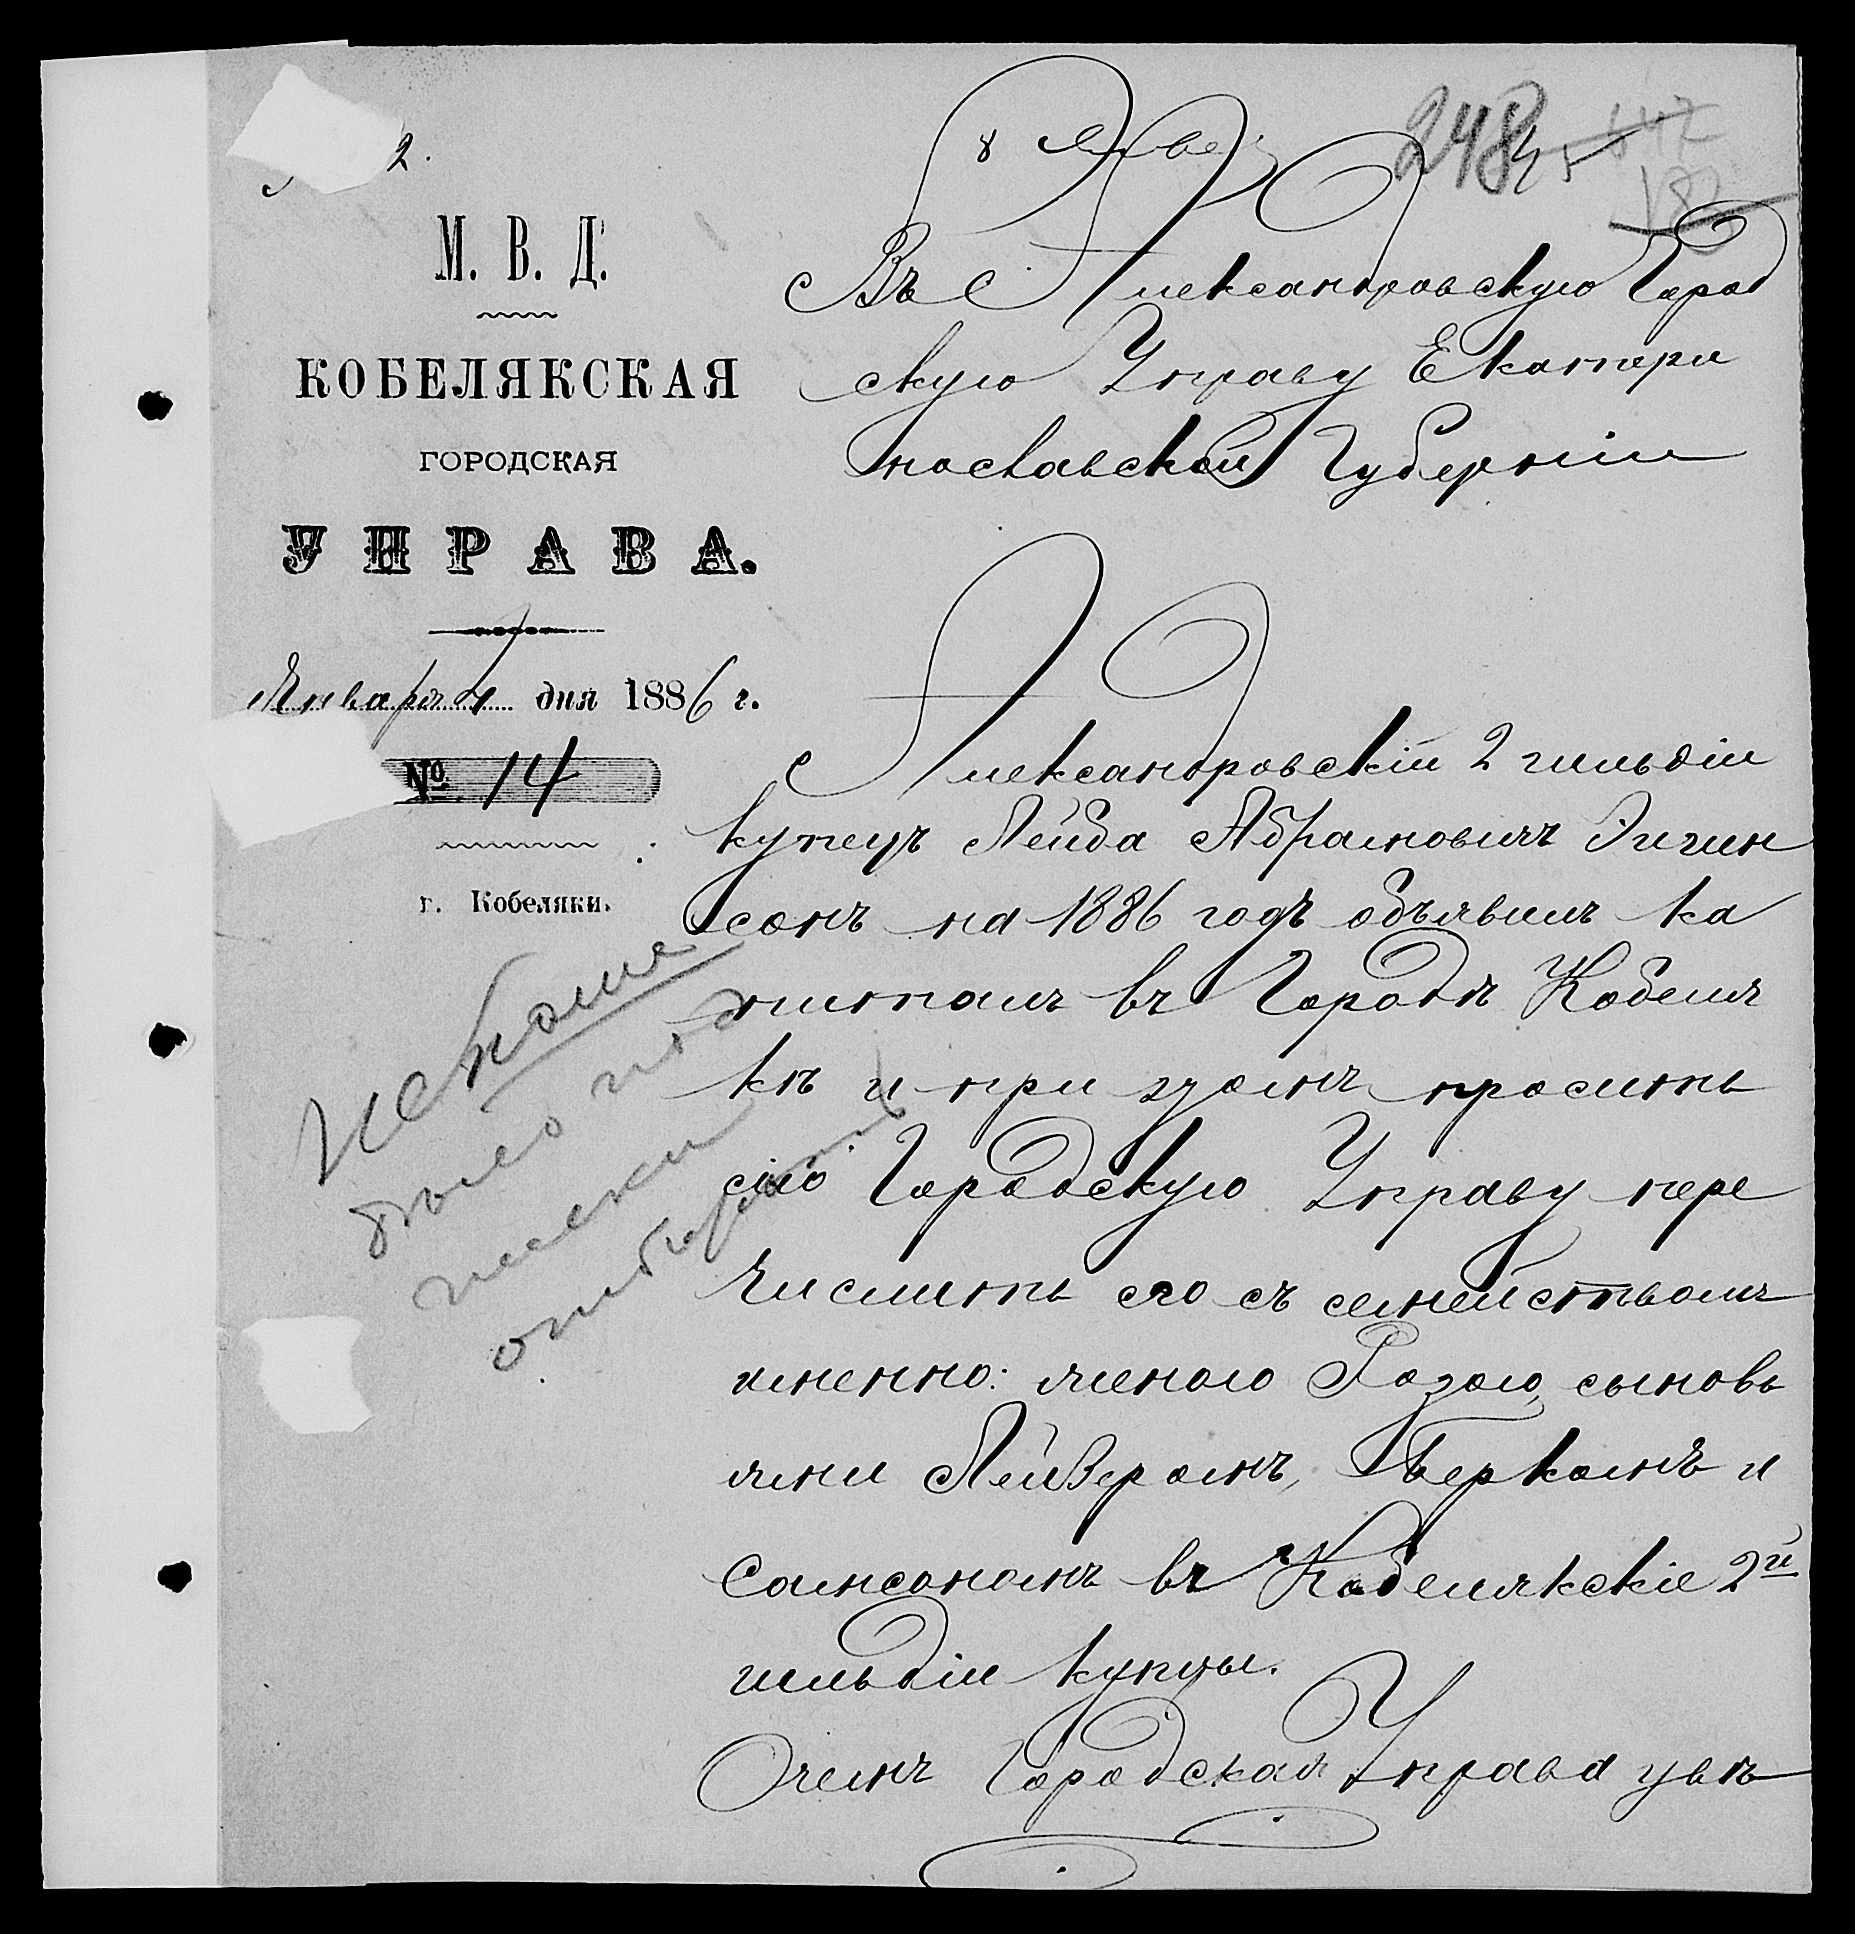 2.
8 Январ
248
М. В. Д.
КОБЕЛЯКСКАЯ
ГОРОДСКАЯ
УПРАВА.
Января 7 дня 1886 г.
№ 14
г. Кобеляки.
Въ Александровскую Город
скую Управу Екатери
нославской Губерніи
Александровскій 2 гильдіи
купецъ Лейба Абрамовичъ Эигин
сонъ на 1886 годъ объявилъ ка
питалъ въ Городѣ Кобеля
кѣ и при этомъ проситъ
сію Городскую Управу пере
числить его съ семействомъ
именно: женою Розою, сыновь
ями Лейзеромъ, Беркомъ и
Самсономъ въ Кобелякскіе 2й
гильдіи купцы.
О чемъ Городская Управа увѣ